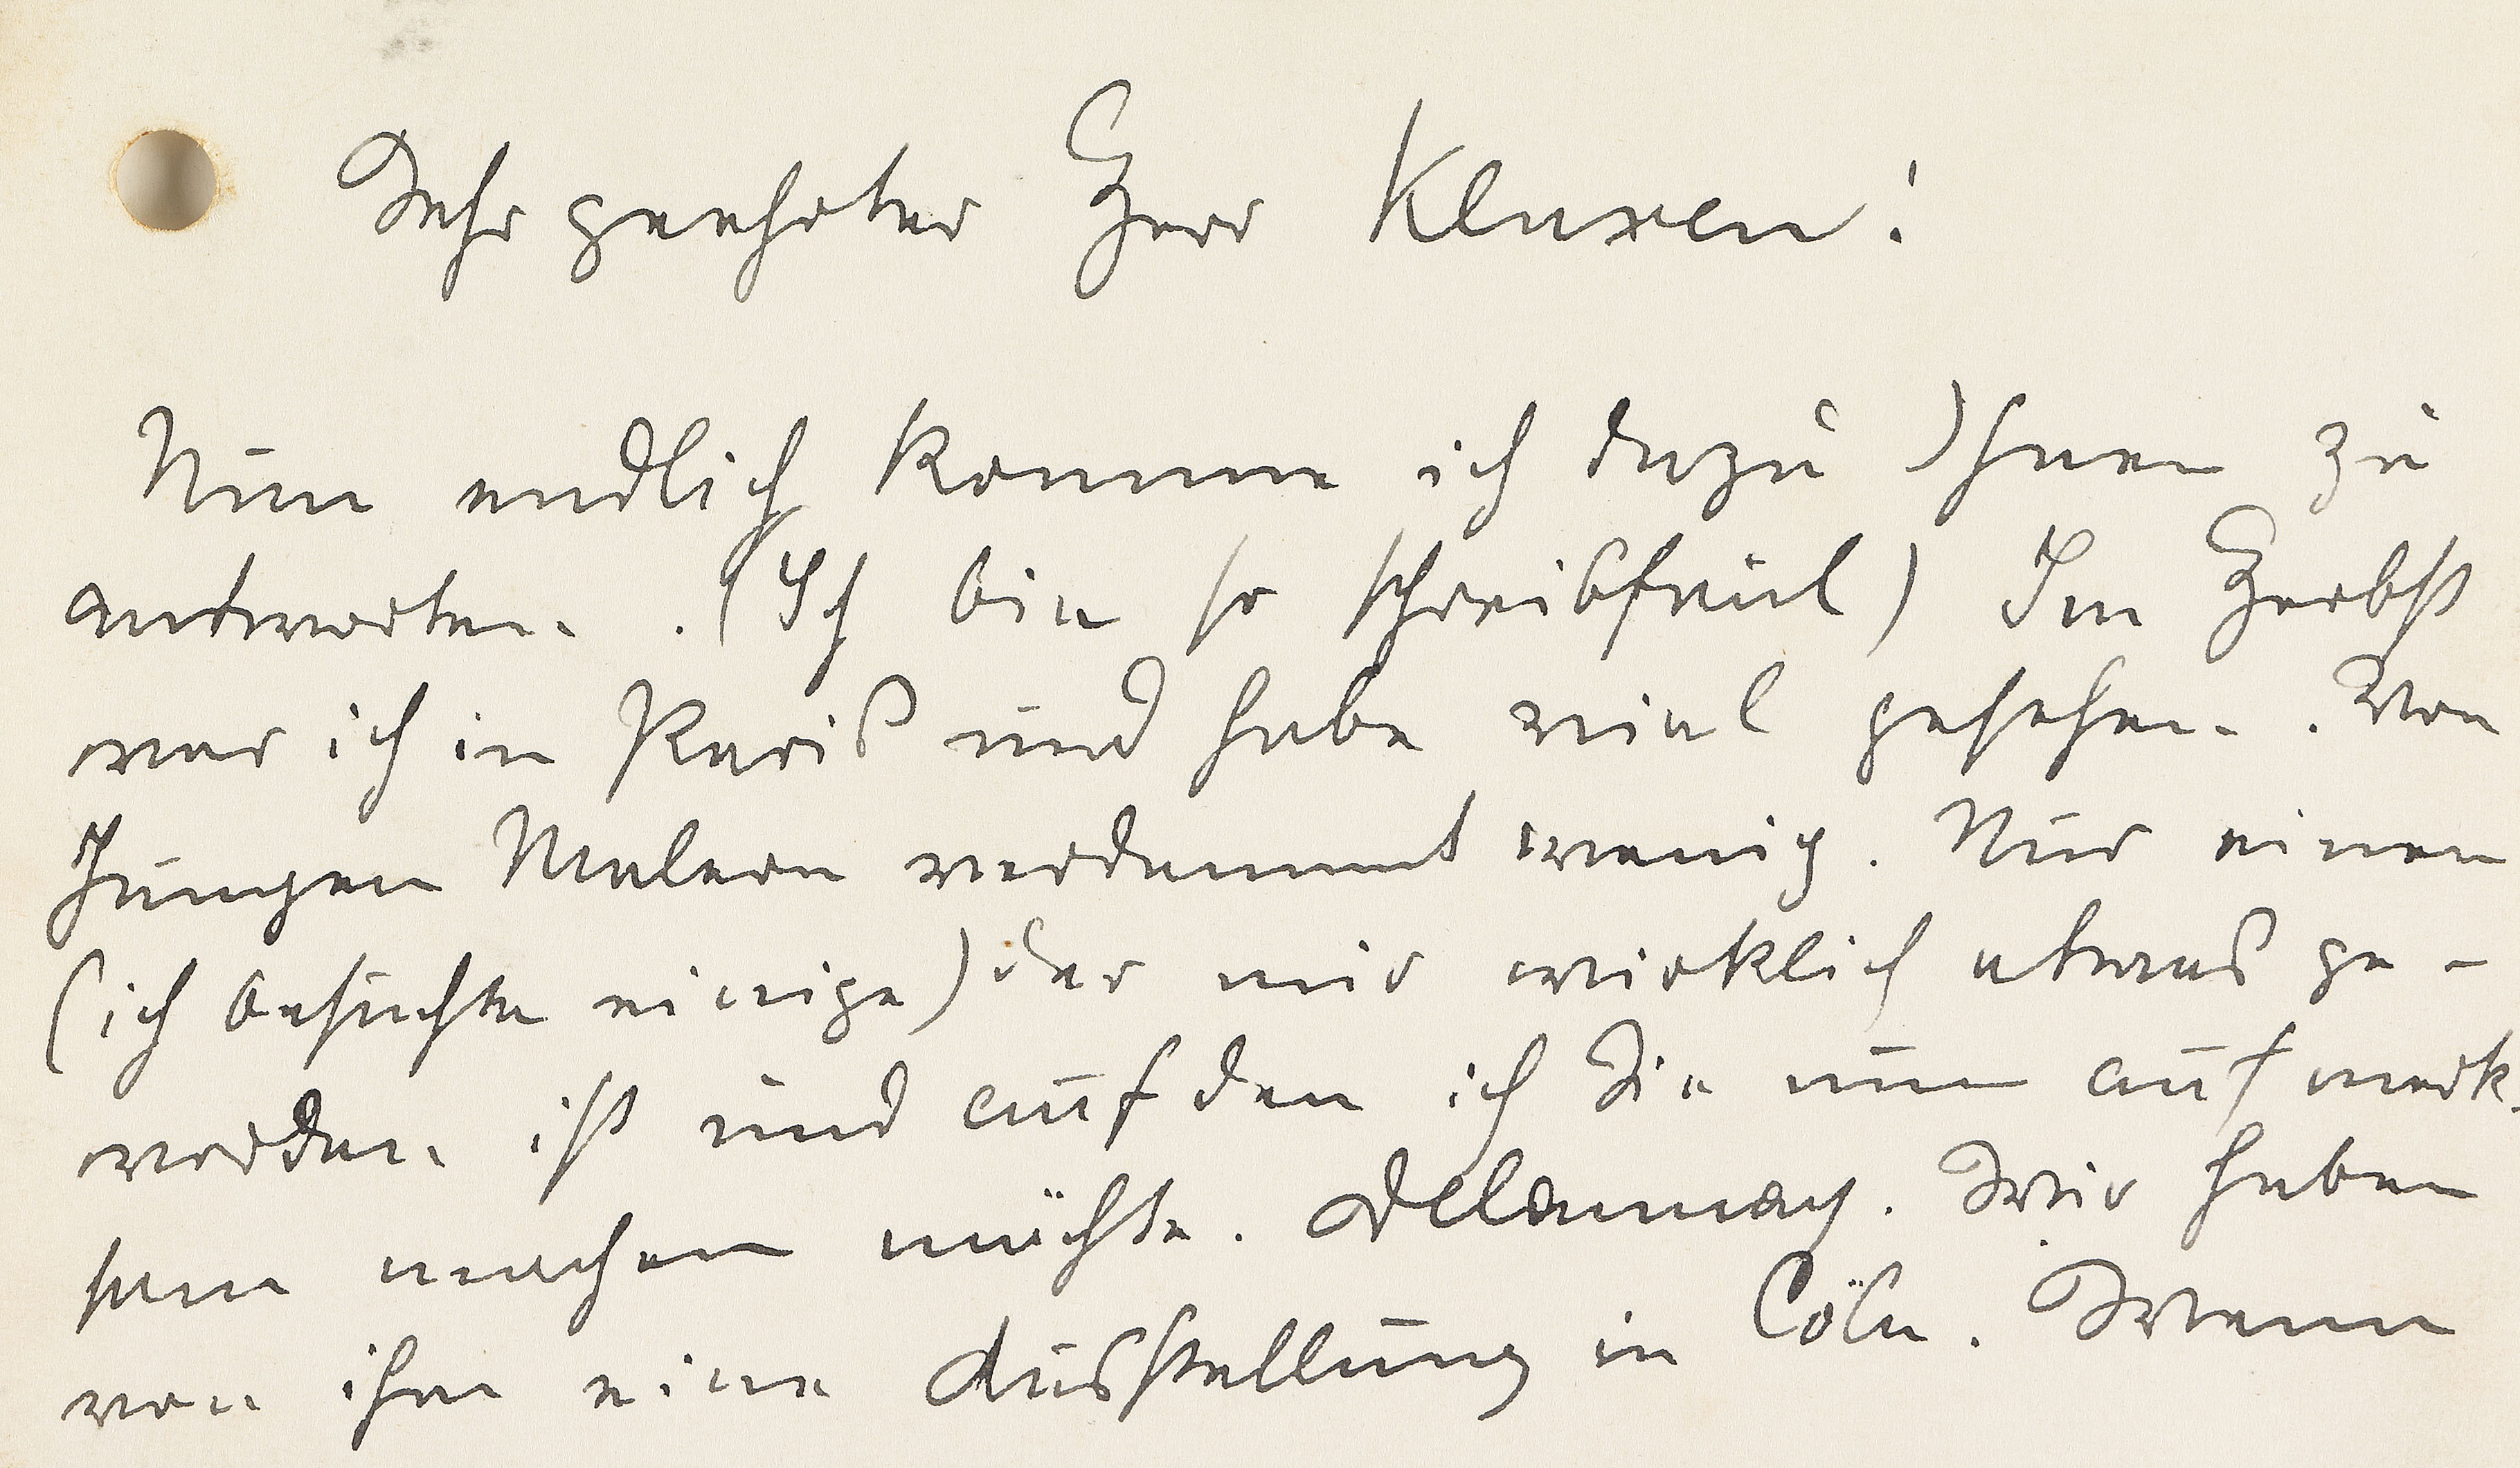 Sehr geehrter Herr Kluxen!
Nun endlich komme ich dazu Ihnen zu
antworten. (Ich bin so schreibfaul) Im Herbst
war ich in Paris und habe viel gesehen. Von
Jungen Malern verdammt wenig. Nur einen
(ich besuchte einige) der mir wirklich etwas ge-
worden ist und auf den ich Sie nun aufmerk-
sam machen möchte. Delaunay. Wir haben
von ihm eine Ausstellung in Cöln. Wenn